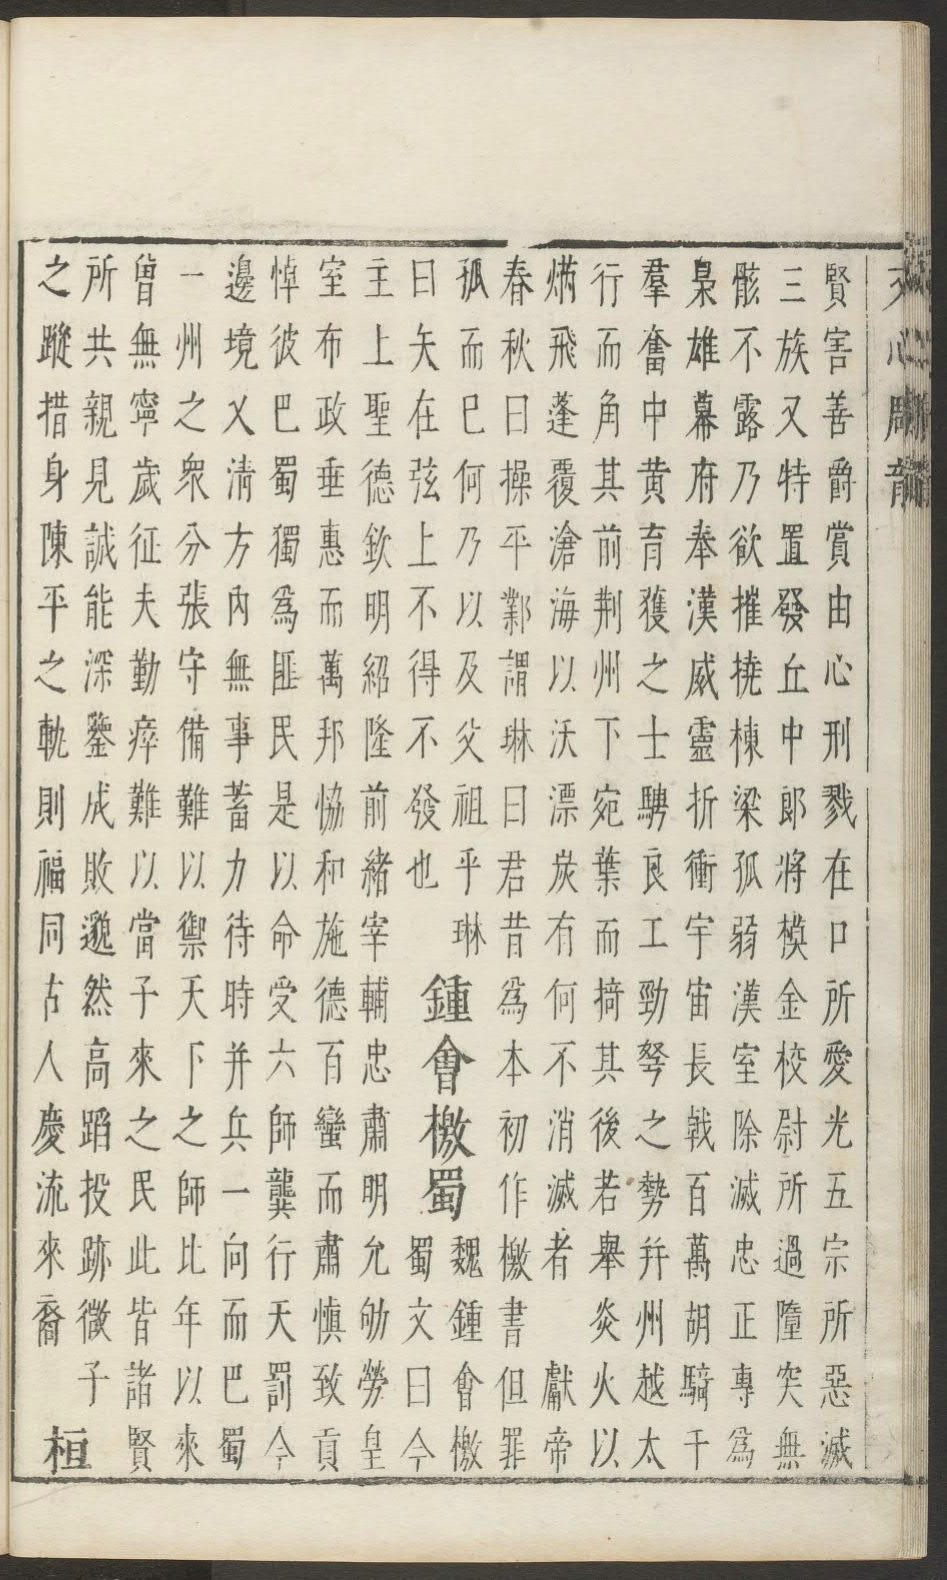 文心雕龍
賢害善爵賞由心刑戮在口所愛光五宗所惡滅
三族又特置發丘中郎將模金校尉所過隳突無
骸不露乃欲摧撓棟梁孤弱漢室除滅忠正專爲
梟雄幕府奉漢威靈折衝宇宙長戟百萬胡騎千
羣奮中黄育獲之士騁良工勁弩之勢幷州越太
行而角其前荆州下宛葉而掎其後若舉炎火以
焫飛蓬覆滄海以沃漂炭有何不消滅者　獻帝
春秋曰操平鄴謂琳曰君昔爲本初作檄書但罪
孤而已何乃以及父祖乎琳
曰矢在弦上不得不發也
鍾會檄蜀
魏鍾會檄
蜀文曰今
主上聖德欽明紹隆前緒宰輔忠肅明允劬勞皇
室布政垂惠而萬邦恊和施德百蠻而肅慎致貢
悼彼巴蜀獨爲匪民是以命受六師龔行天罰今
邊境乂清方內無事蓄力待時并兵一向而巴蜀
一州之衆分張守備難以禦天下之師比年以來
曾無寧歲征夫勤瘁難以當子來之民此皆諸賢
所共親見誠能深鑒成敗邈然高蹈投跡微子
之蹤措身陳平之軌則福同古人慶流來裔
桓